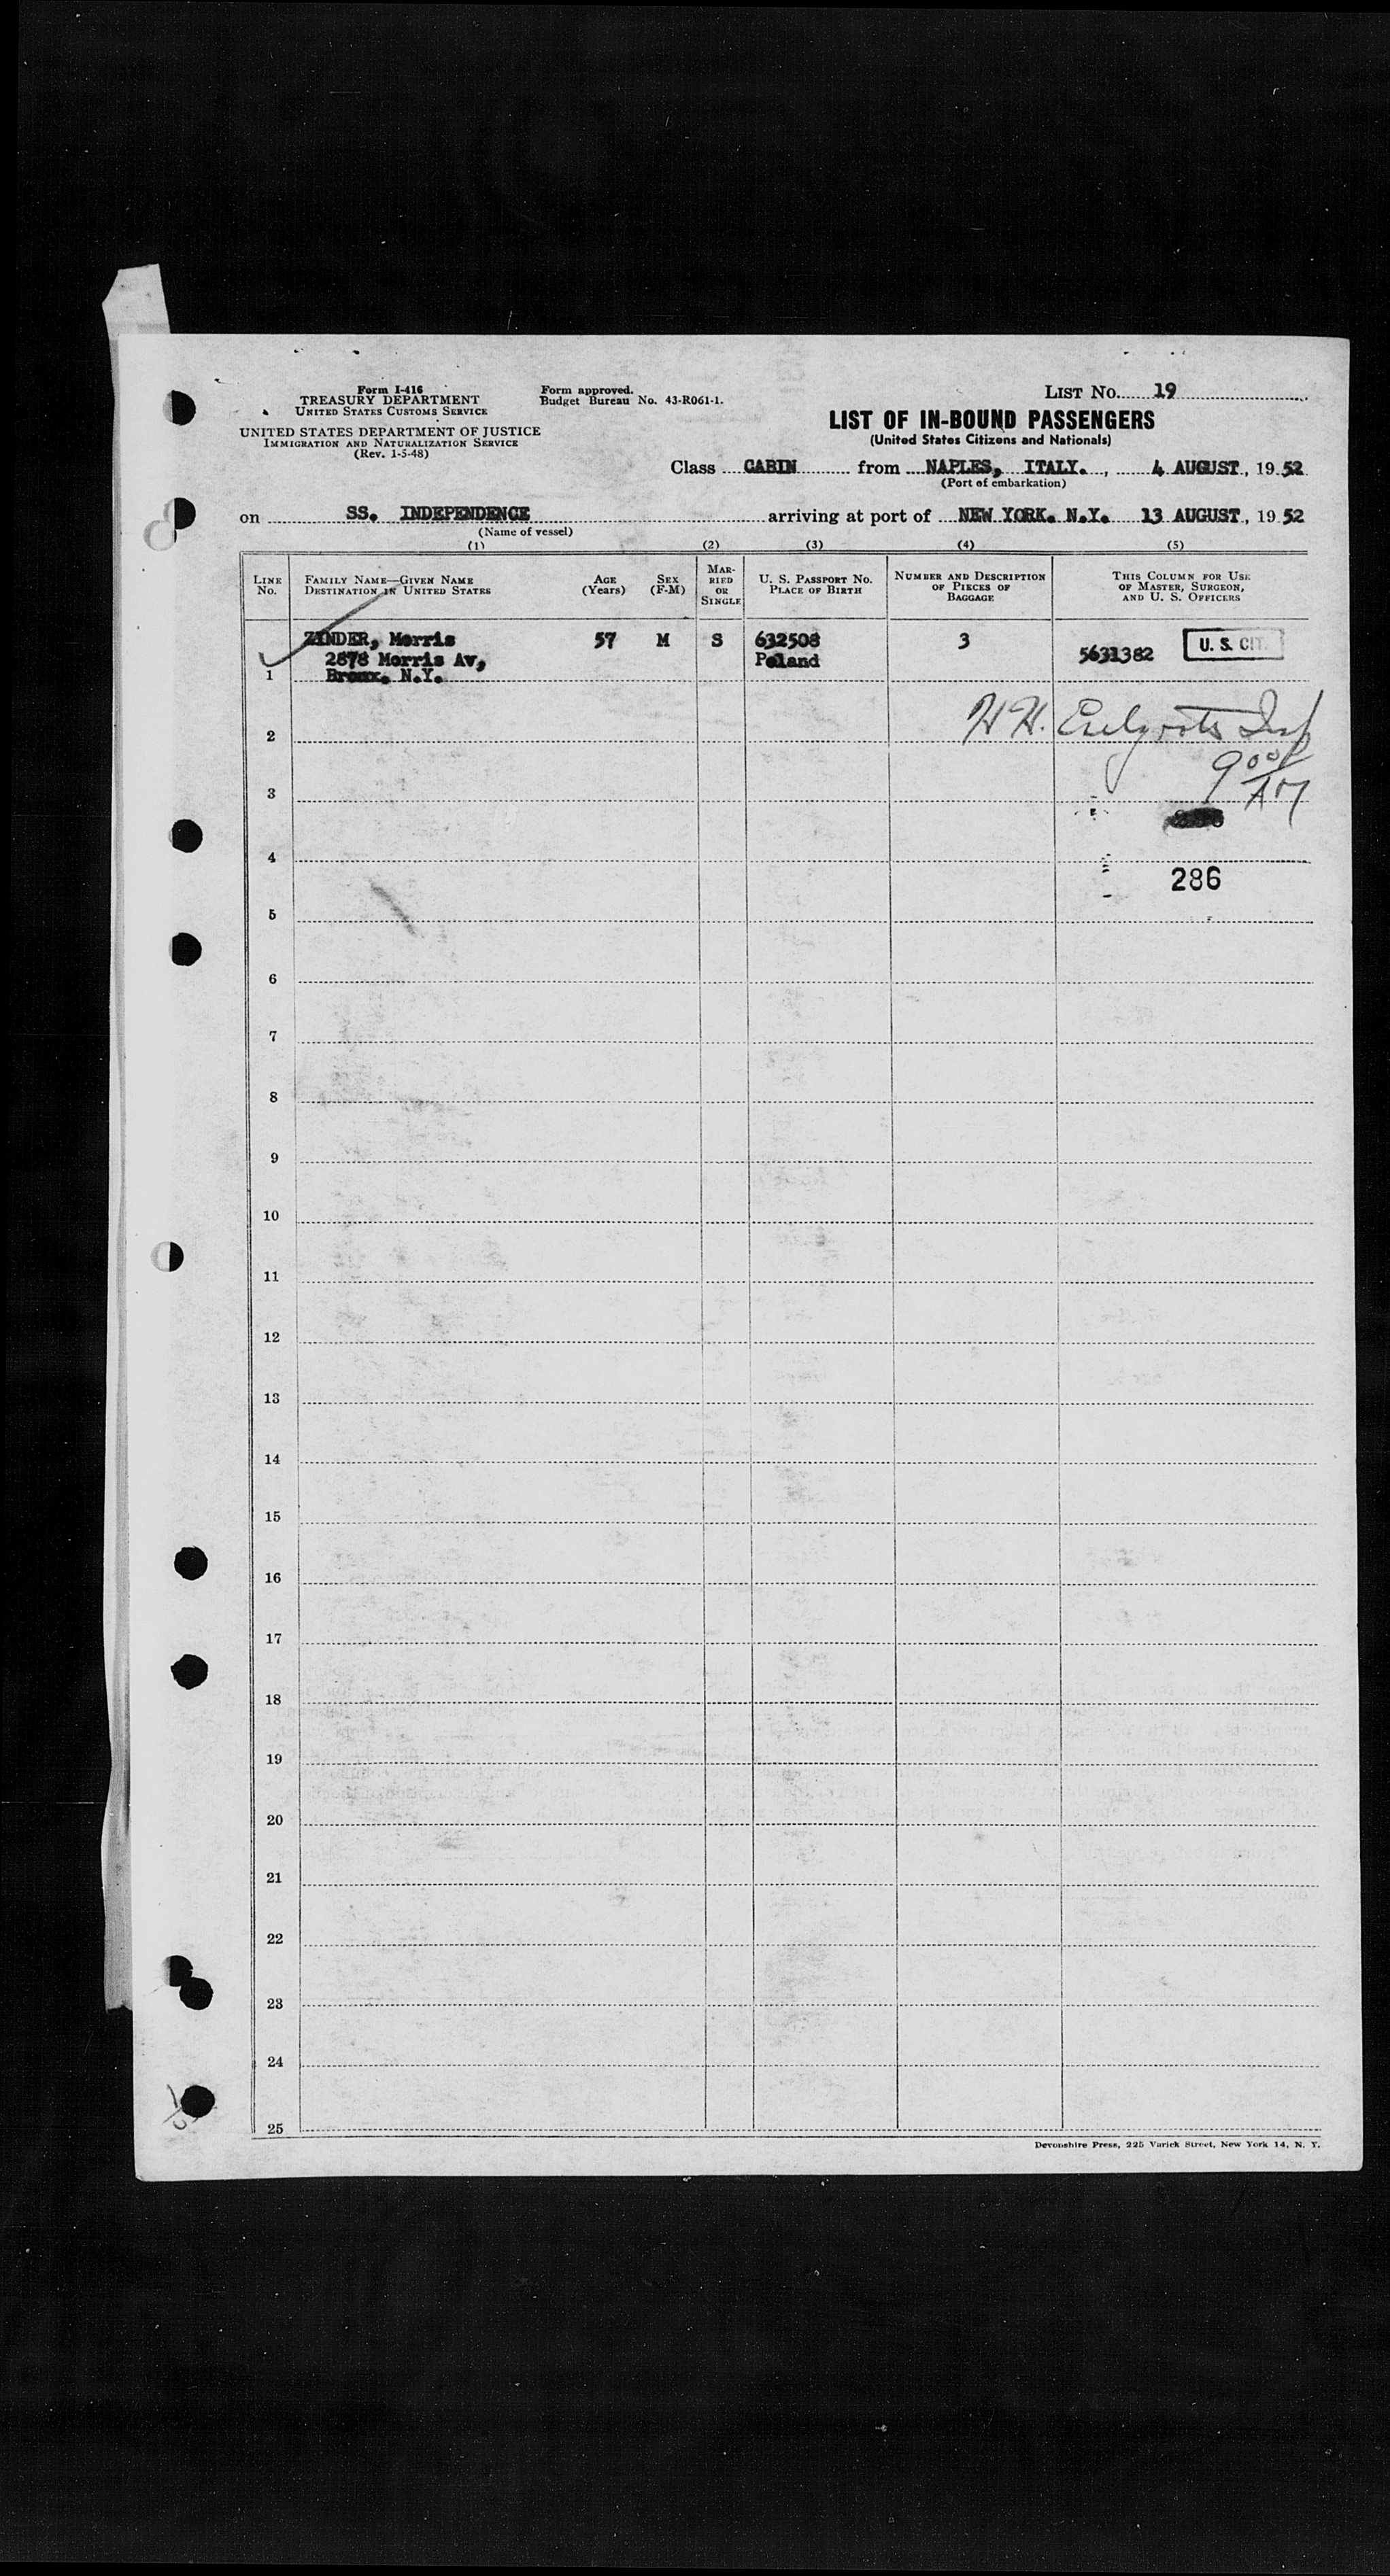 Form I-416
TREASURY DEPARTMENT
UNITED STATES CUSTOMS SERVICE
UNITED STATES DEPARTMENT OF JUSTICE
IMMIGRATION AND NATURALIZATION SERVICE
(Rev. 1-5-48)
Form approved.
Budget Bureau No. 43-R061-1.
LIST No. 19
LIST OF IN-BOUND PASSENGERS
(United States Citizens and Nationals)
Class CABIN from NAPLES, ITALY. , 4 AUGUST, 19 52
(Port of embarkation)
on SS. INDEPENDENCE arriving at port of NEW YORK. N.Y. 13 AUGUST, 19 52
(Name of vessel)
(1) (2) (3) (4) (5)
LINE No.
FAMILY NAME—GIVEN NAME
DESTINATION IN UNITED STATES
AGE (Years)
SEX (F-M)
MARRIED OR SINGLE
U. S. PASSPORT No.
PLACE OF BIRTH
NUMBER AND DESCRIPTION OF PIECES OF BAGGAGE
THIS COLUMN FOR USE OF MASTER, SURGEON, AND U. S. OFFICERS
ZINDER, Morris 57 M S 632508 3 5631382 U. S. CIT.
2878 Morris Av, Poland
1 Bronx. N.Y.
2 H H.
9 00 AM
3
4
286
5
6
7
8
9
10
11
12
13
14
15
16
17
18
19
20
21
22
23
24
25
Devonshire Press, 225 Varick Street, New York 14, N. Y.